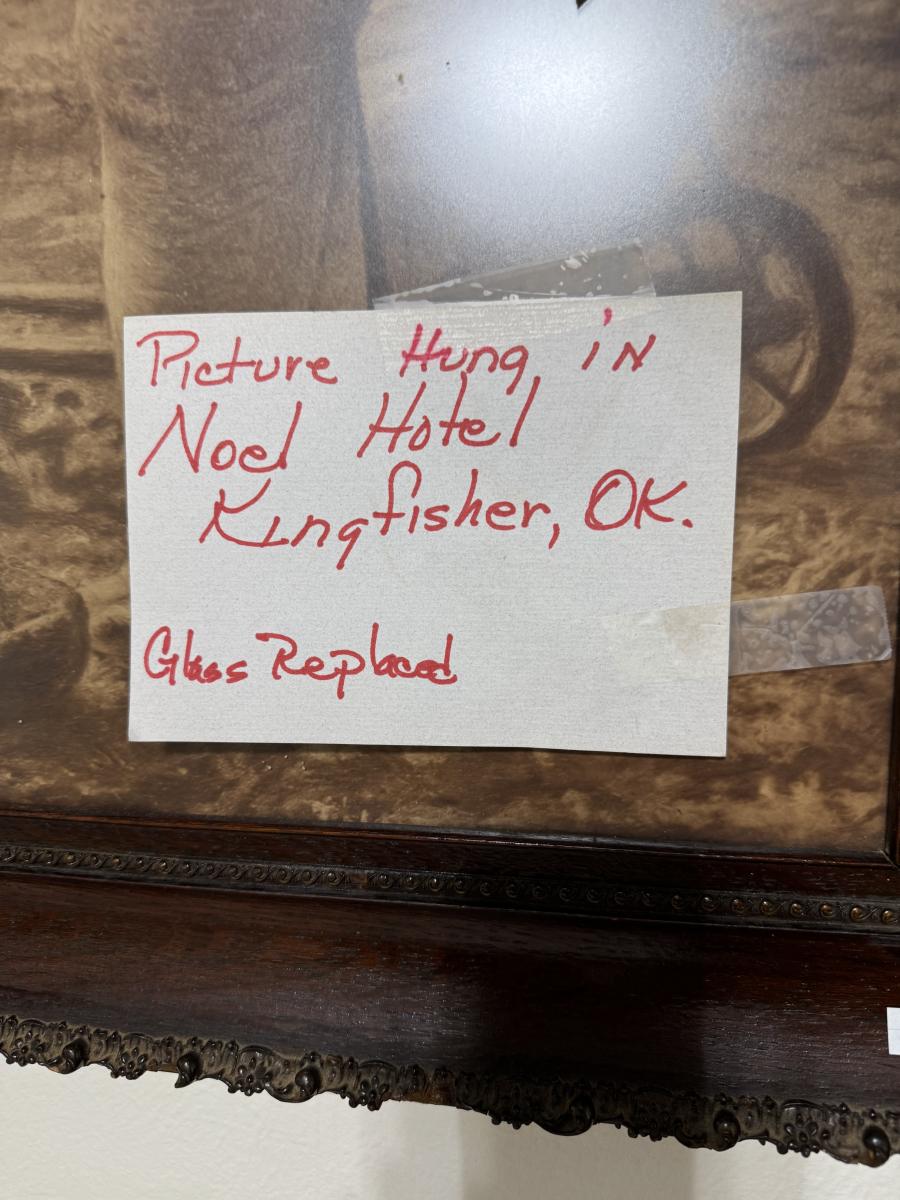 Picture Hung in
Noel Hotel
Kingfisher, OK.
Glass Replaced